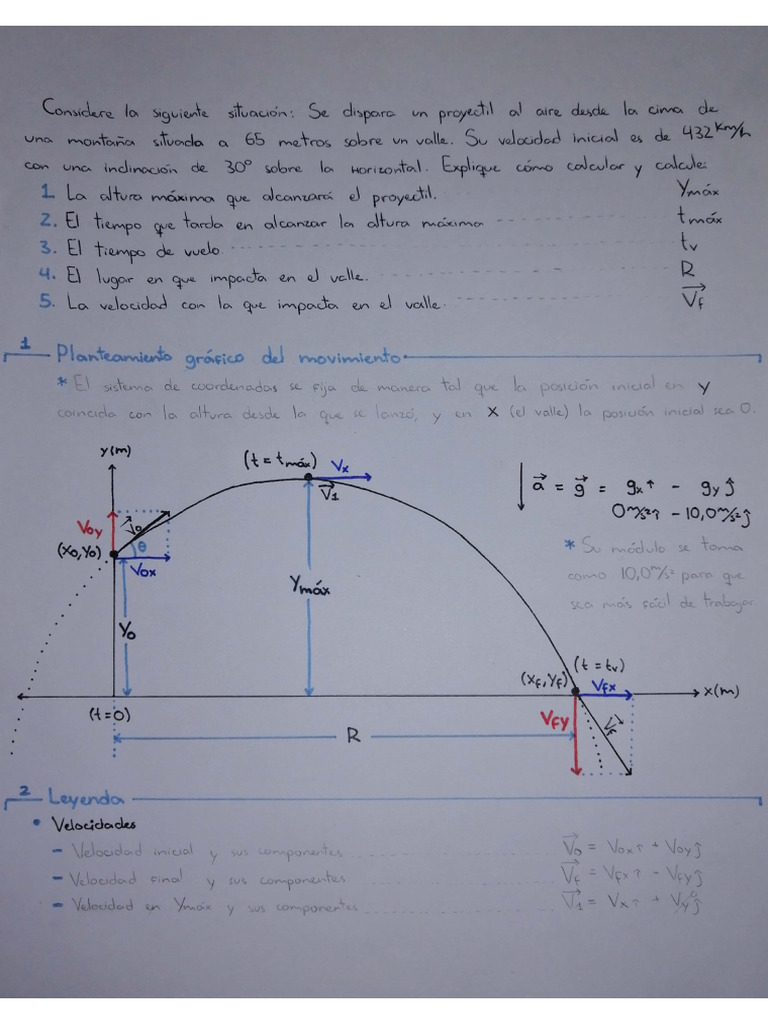 Considere la siguiente situación: Se dispara un proyectil al aire desde la cima de
una montaña situada a 65 metros sobre un valle. Su velocidad inicial es de 432 Km/h
con una inclinación de 30° sobre la horizontal. Explique cómo calcular y calcule:
1. La altura máxima que alcanzará el proyectil. Ymáx
2. El tiempo que tarda en alcanzar la altura máxima tmáx
3. El tiempo de vuelo tv
4. El lugar en que impacta en el valle. R
5. La velocidad con la que impacta en el valle. V⃗f
1 Planteamiento gráfico del movimiento
* El sistema de coordenadas se fija de manera tal que la posición inicial en Y
coincida con la altura desde la que se lanzó, y en X (el valle) la posición inicial sea 0.
y(m)
(t = tmáx) Vx
V⃗1
a⃗ = g⃗ = gx î - gy ĵ
0 m/s² î - 10,0 m/s² ĵ
* Su módulo se toma
como 10,0 m/s² para que
sea más fácil de trabajar
Voy V⃗o
(Xo,Yo) θ
Vox
Yo
Ymáx
(t = tv)
(Xf,Yf) Vfx
x(m)
(t=0)
Vfy V⃗f
R
2 Leyenda
• Velocidades
- Velocidad inicial y sus componentes V⃗o = Vox î + Voy ĵ
- Velocidad final y sus componentes V⃗f = Vfx î - Vfy ĵ
- Velocidad en Ymáx y sus componentes V⃗1 = Vx î + Vy ĵ 0